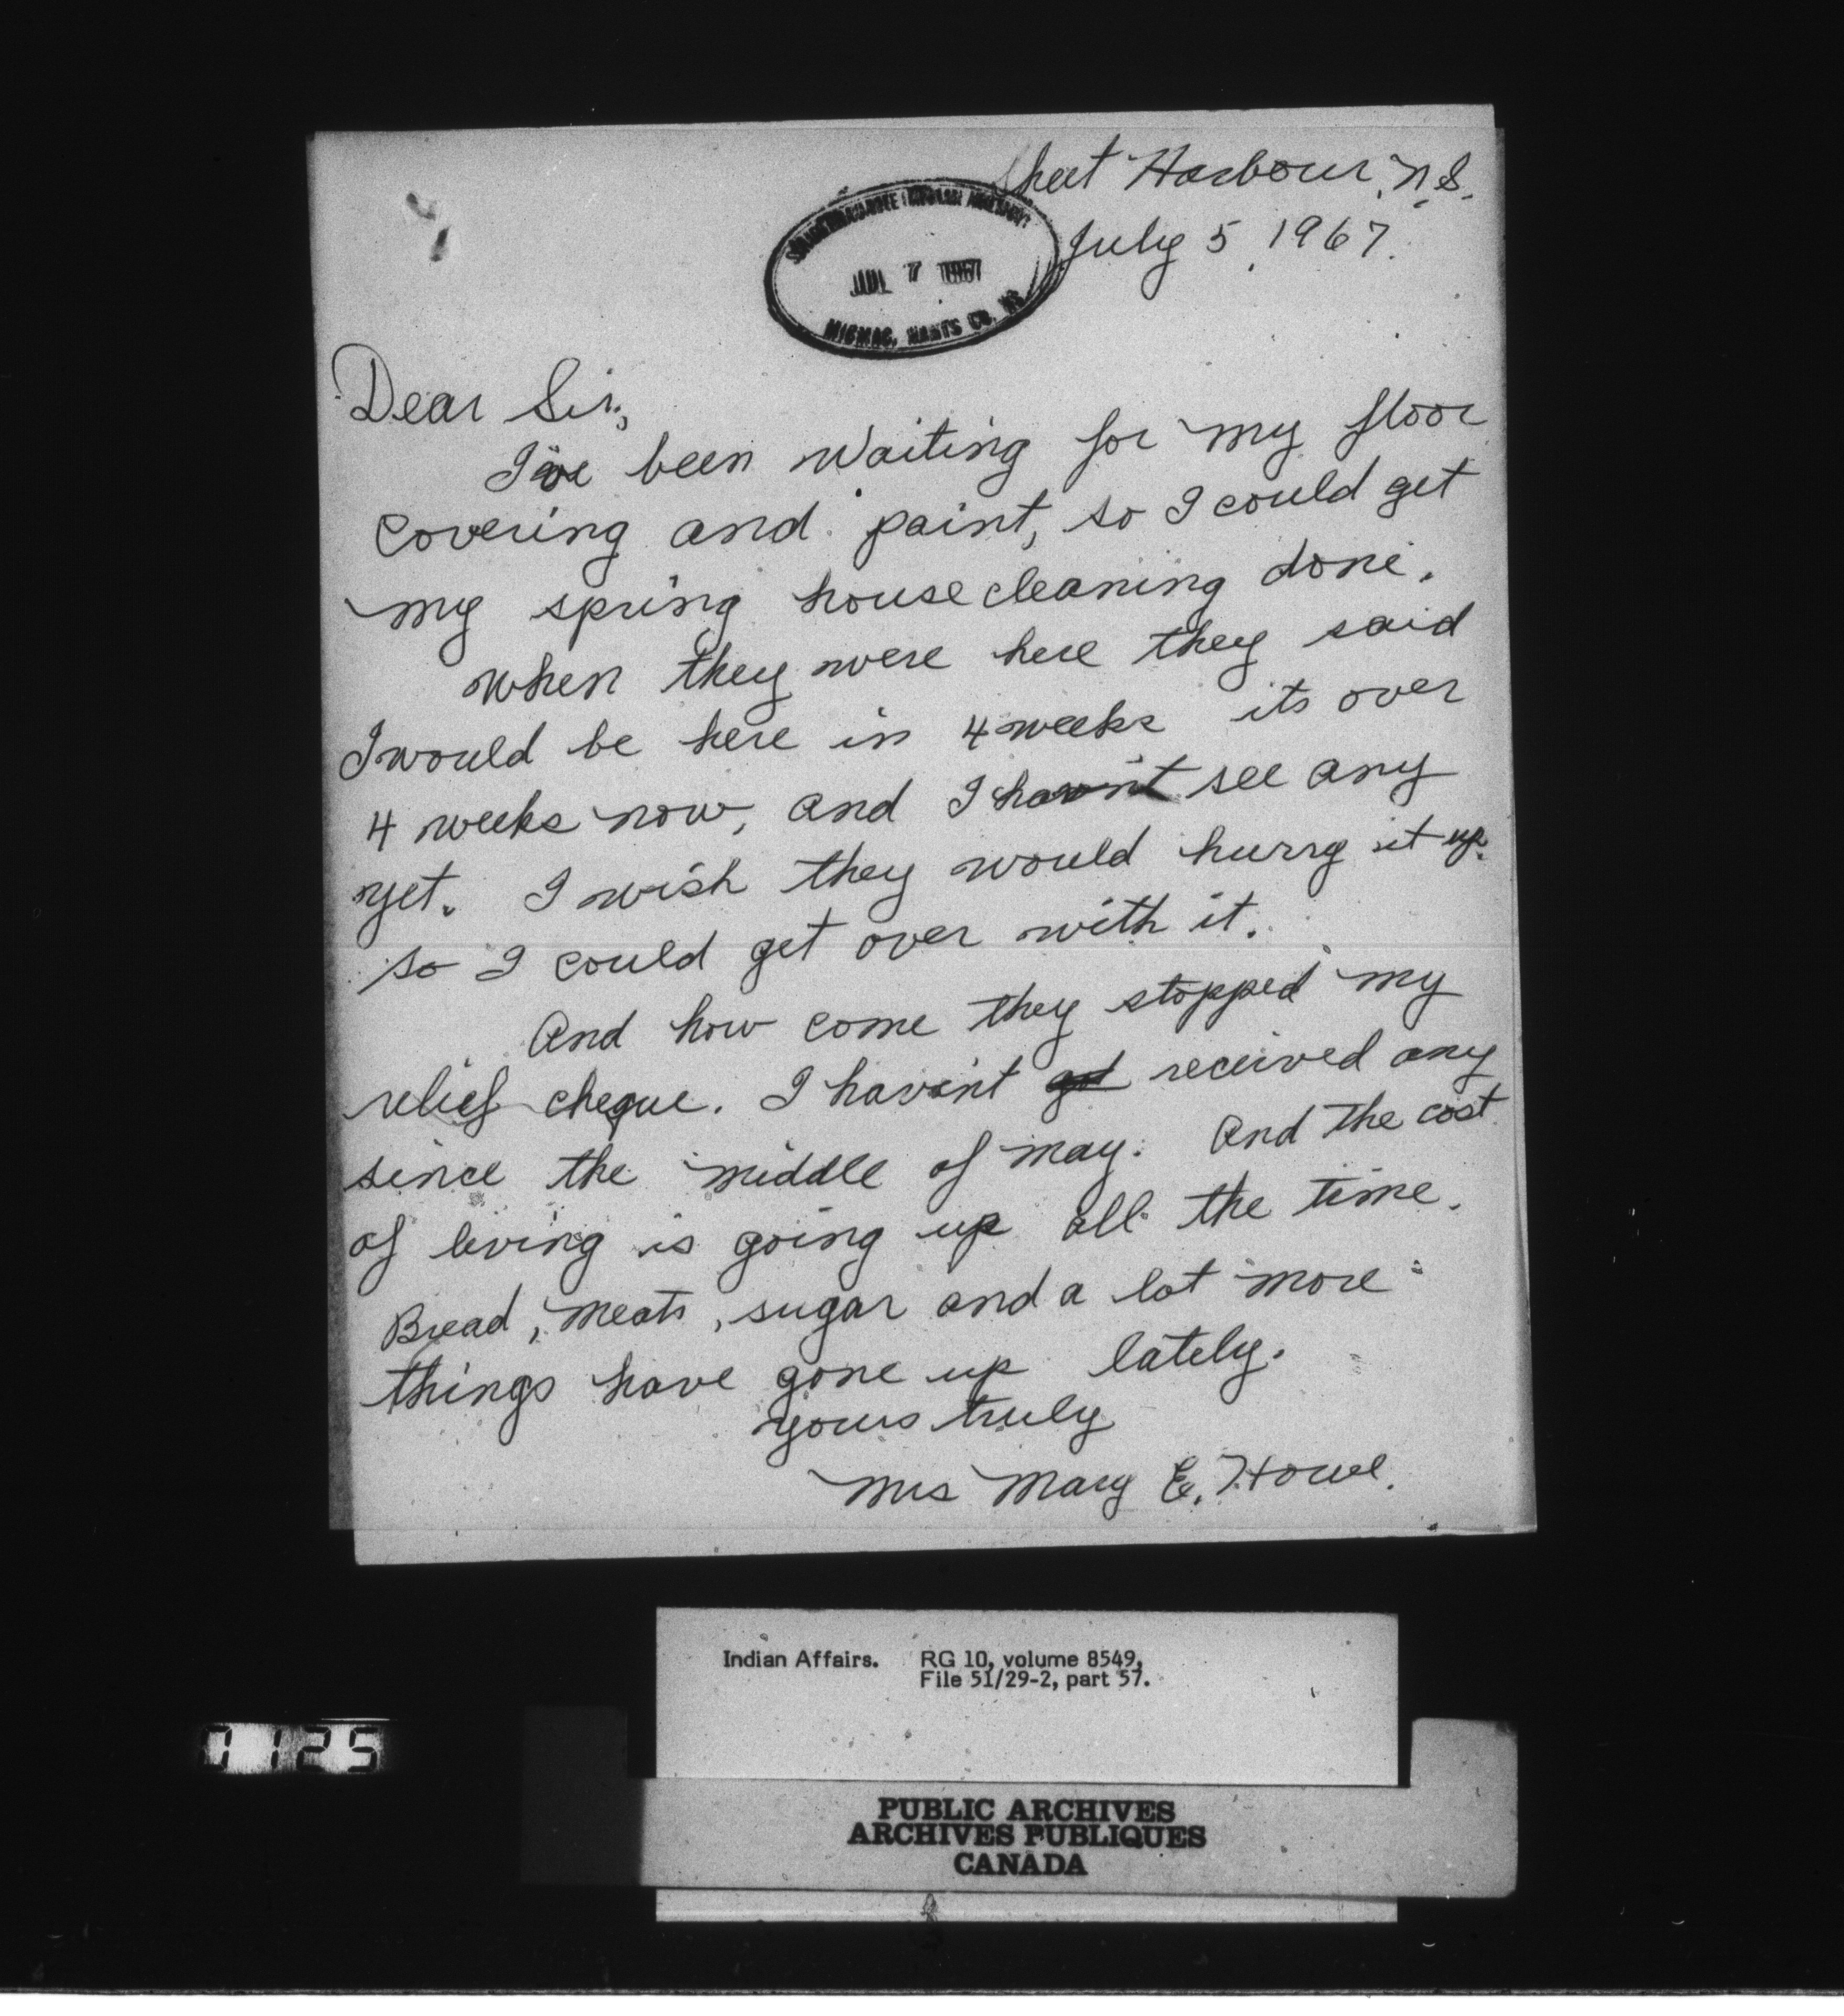 Sheet Harbour, N.S.
July 5, 1967.
SHUBENACADIE INDIAN AGENCY
JUL 7 1967
MICMAC, HANTS CO. NS
Dear Sir,
I've been waiting for my floor
covering and paint, so I could get
my spring housecleaning done.
When they were here they said
I would be here in 4 weeks its over
4 weeks now, and I havin't see any
yet. I wish they would hurry it up.
so I could get over with it.
And how come they stopped my
relief cheque. I havin't got received any
since the middle of may. And the cost
of living is going up all the time.
Bread, meats, sugar and a lot more
things have gone up lately.
yours truly
Mrs Mary E. Howe.
Indian Affairs. RG 10, volume 8549,
File 51/29-2, part 57.
1125
PUBLIC ARCHIVES
ARCHIVES PUBLIQUES
CANADA